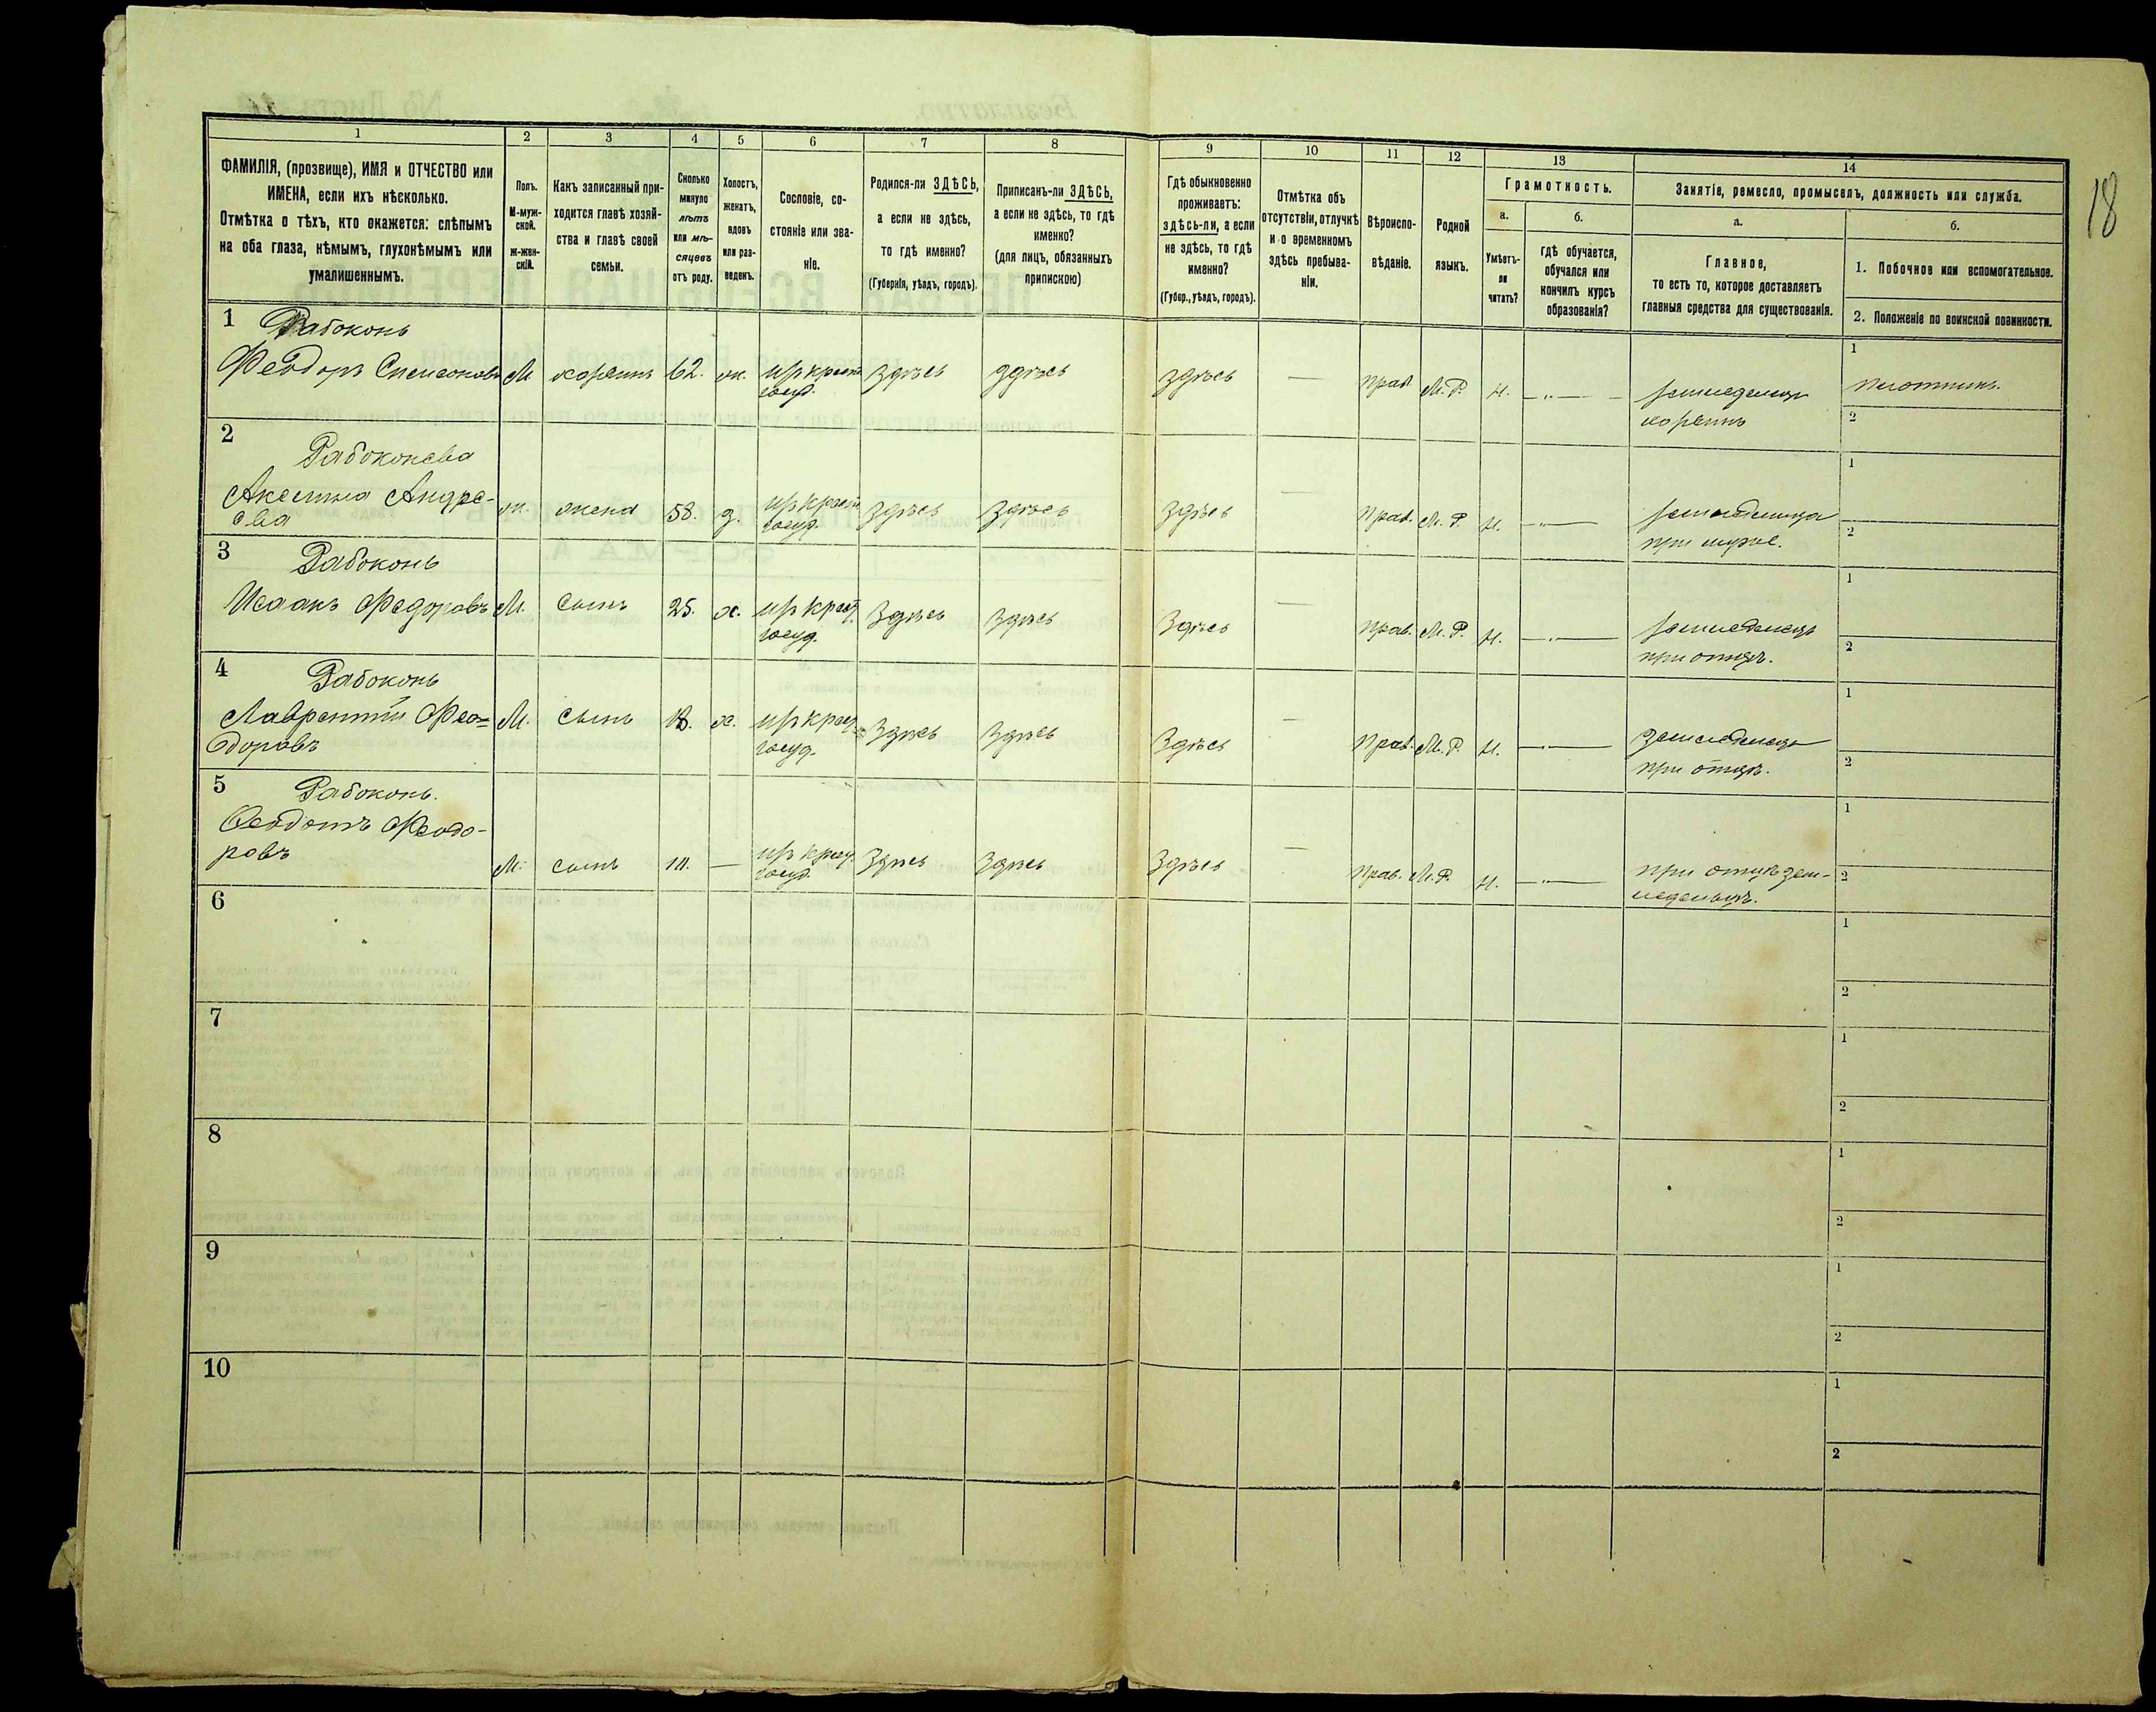 18
1
2
3
4
5
6
7
8
9
10
11
12
13
14
ФАМИЛІЯ, (прозвище), ИМЯ и ОТЧЕСТВО или
ИМЕНА, если ихъ нѣсколько.
Отмѣтка о тѣхъ, кто окажется: слѣпымъ
на оба глаза, нѣмымъ, глухонѣмымъ или
умалишеннымъ.
Полъ.
М-муж-
ской.
ж-жен-
скій.
Какъ записанный при-
ходится главѣ хозяй-
ства и главѣ своей
семьи.
Сколько
минуло
лѣтъ
или мѣ-
сяцевъ
отъ роду.
Холостъ,
женатъ,
вдовъ
или раз-
веденъ.
Сословіе, со-
стояніе или зва-
ніе.
Родился-ли ЗДѢСЬ,
а если не здѣсь,
то гдѣ именно?
(Губернія, уѣздъ, городъ).
Приписанъ-ли ЗДѢСЬ,
а если не здѣсь, то гдѣ
именно?
(для лицъ, обязанныхъ
припискою)
Гдѣ обыкновенно
проживаетъ:
здѣсь-ли, а если
не здѣсь, то гдѣ
именно?
(Губер., уѣздъ, городъ).
Отмѣтка объ
отсутствіи, отлучкѣ
и о временномъ
здѣсь пребыва-
ніи.
Вѣроиспо-
вѣданіе.
Родной
языкъ.
Грамотность.
а.
Умѣетъ-
ли
читать?
б.
гдѣ обучается,
обучался или
кончилъ курсъ
образованія?
Занятіе, ремесло, промыселъ, должность или служба.
а.
Главное,
то есть то, которое доставляетъ
главныя средства для существованія.
б.
1. Побочное или вспомогательное.
2. Положеніе по воинской повинности.
1 Рабоконь
Феодоръ М. хозяинъ 62. ж. здѣсь здѣсь здѣсь — прав. М.Р. н. —„— земледѣлецъ
хозяинъ
1 плотникъ.
2
2 Рабоконева
Акелина Андре-
ева ж. жена 58. з. здѣсь здѣсь здѣсь — прав. М.Р. н. —„— земледѣлица
при мужѣ.
1
2
3 Рабоконь
Исаакъ Федоровъ М. сынъ 25. х. здѣсь здѣсь здѣсь — прав. М.Р. н. —„— земледѣлецъ
при отцѣ.
1
2
4 Рабоконь
Лаврентій Фео=
доровъ М. сынъ 18. х. здѣсь здѣсь здѣсь — прав. М.Р. н. —„— земледѣлецъ
при отцѣ.
1
2
5 Рабоконь.
Феодотъ Феодо-
ровъ М. сынъ — здѣсь здѣсь здѣсь — прав. М.Р. н. —„— при отцѣ зем-
ледѣльцѣ.
1
2
6
1
2
7
1
2
8
1
2
9
1
2
10
1
2